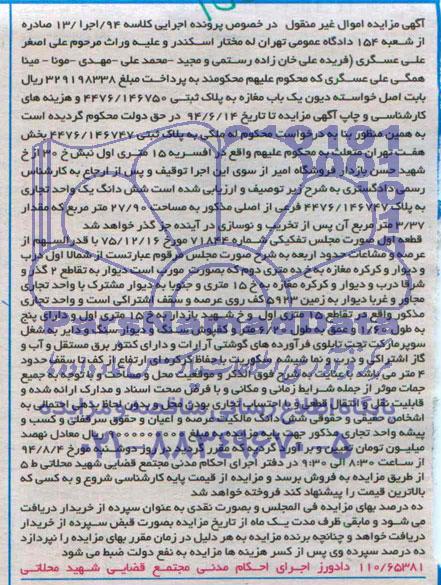 آگهی مزایده اموال غیر منقول در خصوص پرونده اجرایی کلاسه ۹۴/اجرا /۱۳ صادره
از شعبه ۱۵۴ دادگاه عمومی تهران له مختار اسکندر و علیه وراث مرحوم علی اصغر
علی عسگری (فریده علی خان زاده رستمی و مجید -محمد علی -مهدی -مونا - مینا
همگی علی عسگری که محکوم علیهم محکومند به پرداخت مبلغ ۳۲۹۱۹۸۳۳۸ ریال
بابت اصل خواسته دیون یک باب مغازه به پلاک ثبتی ۴۴۷۶/۱۴۶۷۵۰ و هزینه های
کارشناسی و چاپ آگهی مزایده تا تاریخ ۹۴/۶/۱۴ در حق دولت محکوم گردیده است
به همین منظور بنا به درخواست محکوم له ملکی به پلاک ثبتی ۴۴۷۶/۱۴۶۷۴۷ بخش
هفت تهران متعلق به محکوم علیهم واقع در افسریه ۱۵ متری اول نبش خ ۳۰ از خ
شهید حسن بازدار فروشگاه امیر از سوی این اجرا توقیف و پس از ارجاع به کارشناس
رسمی دادگستری به شرح زیر توصیف و ارزیابی شده است شش دانگ یک واحد تجاری
به پلاک ۴۴۷۶/۱۴۶۷۴۷ فرعی از اصلی مذکور به مساحت ۲۷/۹۰ متر مربع که مقدار
۳/۳۷ متر مربع آن پس از تخریب و نوسازی در آینده جز گذر خواهد شد
قطعه اول صورت مجلس تفکیکی شماره ۷۱۸۴۴ مورخ ۷۵/۱۲/۱۶ با قدرالسهم از
عرصه و مشاعات حدود اربعه به شرح صورت مجلس مرقوم عبارتست از شمالا اول درب
و دیوار و کرکره مغازه به خ ۱۵ متری دوم که بصورت مورب است دیوار به تقاطع ۲ گذر و
شرقا درب و دیوار و کرکره مغازه به خ ۱۵ متری و جنوبا به دیوار مشترک با واحد تجاری
مجاور و غربا دیوار به زمین ۵۱۹۳ کف روی عرصه و سقف اشتراکی است و واحد تجاری
مذکور واقع در تقاطع ۱۵ متری اول و خ شهید بازدار به خ ۱۵ متری اول و دارای پنج
سوپر مارکت تحت تابلوی فرآورده های گوشتی آرارات و دارای کنتور برق مستقل و آب و
۴ متر می باشد با عنایت به شرح فوق الذکر و موقعیت محل و مساحت و با توجه به جمیع
جهات موثر از جمله شرایط زمانی و مکانی و با فرض صحت اسناد و مدارک ارائه شده و
قابلیت نقل و انتقال قطعی و با احتساب تجاری بودن محل و بدون لحاظ بدهی احتمالی به
اشخاص حقیقی و حقوقی شش دانگ مالکیت عرصه و اعیان و حقوق سرقفلی و کسب و
پیشه واحد تجاری مذکور جمعا به مبلغ ریال معادل نهصد
میلیون تومان تعیین و برآورد گردیده مقرر گردید در روز دوشنبه مورخ ۹۴/۸/۴
از ساعت ۸:۳۰ الی ۹:۳۰ در دفتر اجرای احکام مدنی مجتمع قضایی شهید محلاتی ط ۵
از طریق مزایده به فروش برسد و مزایده از قیمت پایه کارشناسی شروع و به کسی که
بالاترین قیمت را پیشنهاد کند فروخته خواهد شد
ده درصد بهای مزایده فی المجلس و بصورت نقدی به عنوان سپرده از خریدار دریافت
می شود و مابقی ظرف مدت یک ماه از تاریخ مزایده بصورت قبض سپرده از خریدار
دریافت خواهد و چنانچه برنده مزایده به هر دلیل در زمان مقرر بهای مزایده را نپردازد
ده درصد سپرده وی پس از کسر هزینه ها مزایده به نفع دولت ضبط می شود
۱۱۰/۶۵۳۸۱ دادورز اجرای احکام مدنی مجتمع قضایی شهید محلاتی
پایگاه اطلاع رسانی مناقصه و مزایده
۰۲۱-۸۸۳۴۹۶۷۰-۵